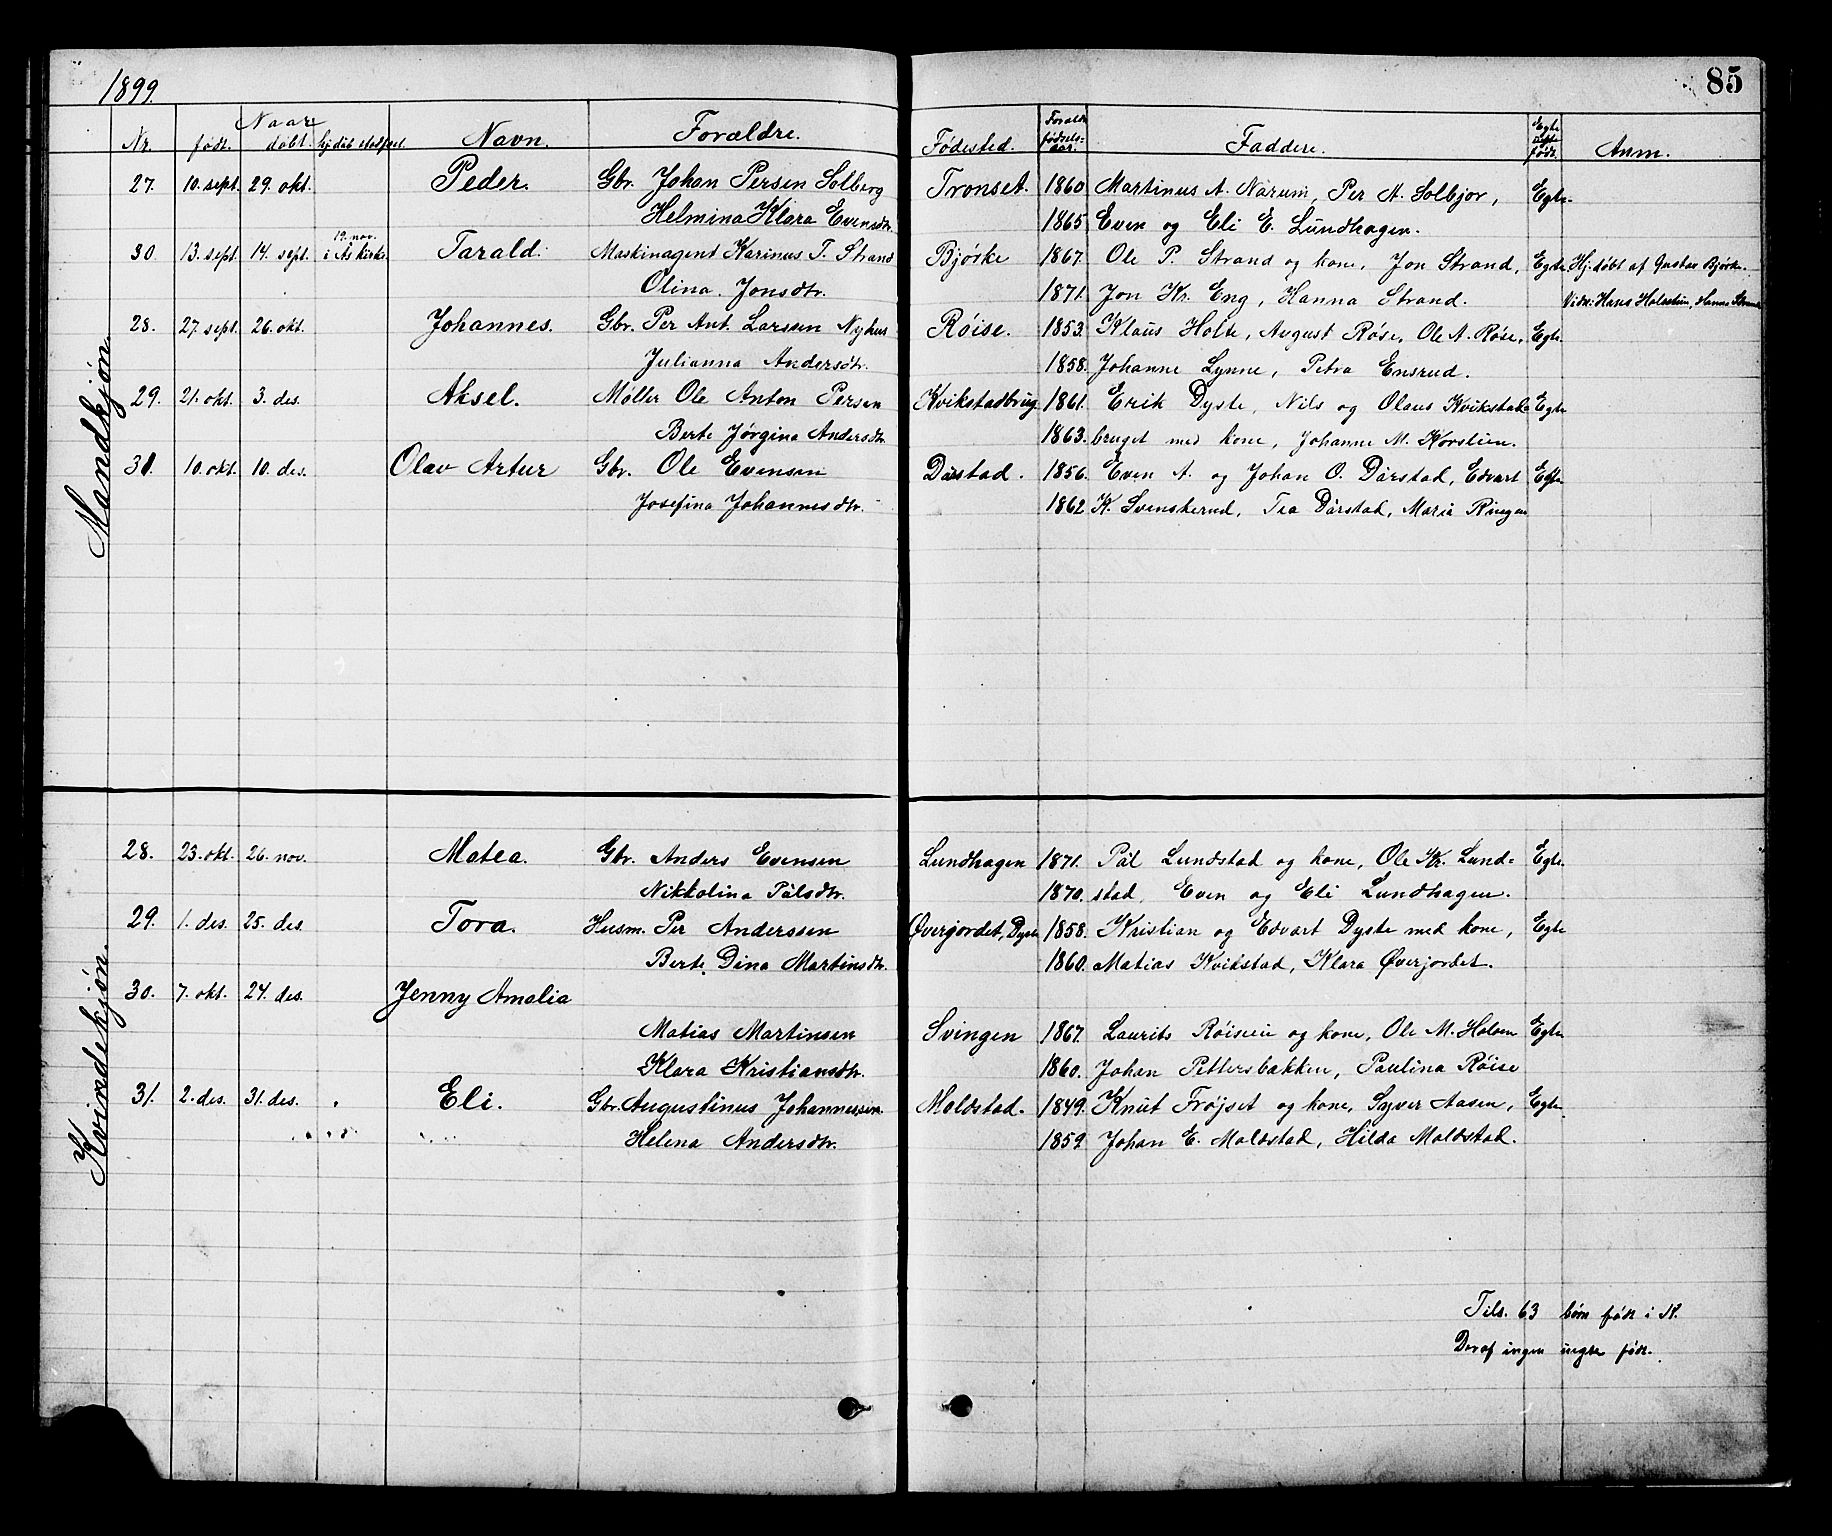 1899.
85
Naar
Nr. født. døbt. hj.døbt stadfæst. Navn. Forældre. Fødested. Forældr. fødsels- aar. Faddere. Egte uegte født. Anm.
Mandkjøn.
27. 10. sept. 29. okt. Peder. Gbr. Johan Persen Solberg Tronset. 1860 Martinus A. Narum, Per A. Solbjør, Egte.
Helmina Klara Evensdtr. 1865 Even og Eli E. Lundhagen.
19. nov.
30. 13. sept. 14. sept. i Ås kirke. Tarald. Maskinagent Karinus T. Strand Bjørke 1867. Ole P. Strand og kone, Jon Strand, Egte Hj.døbt af Gustav Bjørke.
Olina Jonsdtr. 1871. Jon Kr. Eng, Hanna Strand. Vidn: Hans Holstein, Hanna Strand
28. 27. sept. 26. okt. Johannes. Gbr. Per Ant. Larsen Nyhus Røise. 1853. Klaus Holte, August Røse, Ole A. Røse, Egte.
Julianna Andersdtr. 1858. Johanne Lynne, Petra Ensrud.
29. 21. okt. 3. des. Aksel. Møller Ole Anton Persen Kvikstadbrug 1861. Erik Dyste, Nils og Olaus Kvikstad- Egte
Berte Jørgina Andersdtr. 1863. bruget med kone, Johanne M. Korslien.
31. 10. okt. 10. des. Olav Artur Gbr. Ole Evensen Dårstad. 1856. Even A. og Johan O. Dårstad, Edvart Egte
Josefina Johannesdtr. 1862 K. Svenskerud, Tea Dårstad, Maria Ringen
Kvindekjøn.
28. 23. okt. 26. nov. Matea. Gbr. Anders Evensen Lundhagen 1871. Pål Lundstad og kone, Ole Kr. Lund= Egte.
Nikkolina Pålsdtr. 1870. stad, Even og Eli Lundhagen.
29. 1. des. 25. des. Tora. Husm. Per Anderssen Øverjordet, Dyste 1858. Kristian og Edvart Dyste med kone, Egte
Berte Dina Martinsdtr. 1860. Matias Kvikstad, Klara Øverjordet.
30. 7. okt. 24. des. Jenny Amalia
Matias Martinsen Svingen 1867. Laurits Røiseie og kone, Ole M. Holsen Egte
Klara Kristiansdtr. 1860. Johan Pettersbakken, Paulina Røise
31. 2. des. 31. des. Eli. Gbr. Augustinus Johannessen. Moldstad. 1849. Knut Frøjset og kone, Syver Aasen, Egte
Helena Andersdtr. 1859 Johan E. Moldstad, Hilda Moldstad.
Tils. 63 børn født i K.
Deraf ingen uegte født.